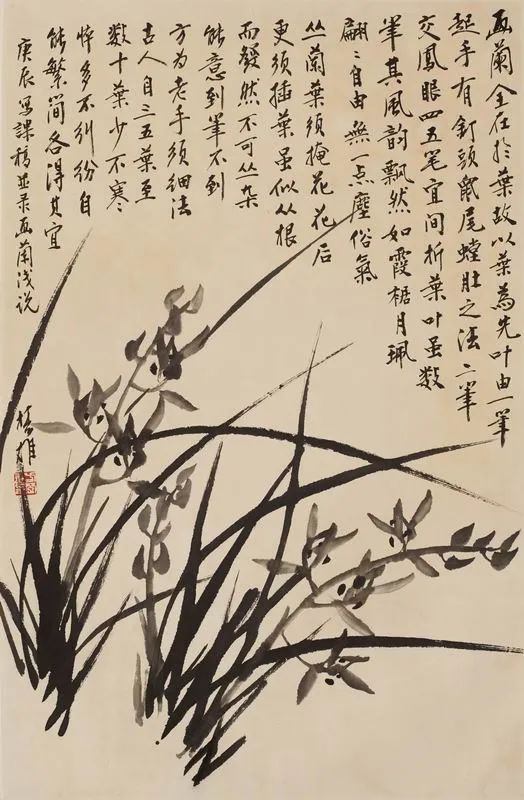 画蘭全在於葉故以葉為先叶由一筆
起手有釘頭鼠尾螳肚之法二筆
交鳳眼四五笔宜间折葉叶虽数
筆其风韵飘然如霞裾月珮
翩々自由無一点塵俗氣
丛蘭葉须掩花花后
更须插葉虽似从根
而發然不可丛杂
能意到筆不到
方为老手须细法
古人自三五葉至
数十葉少不寒
悴多不糾纷自
能繁简各得其宜
庚辰写課稿並录画蘭浅说